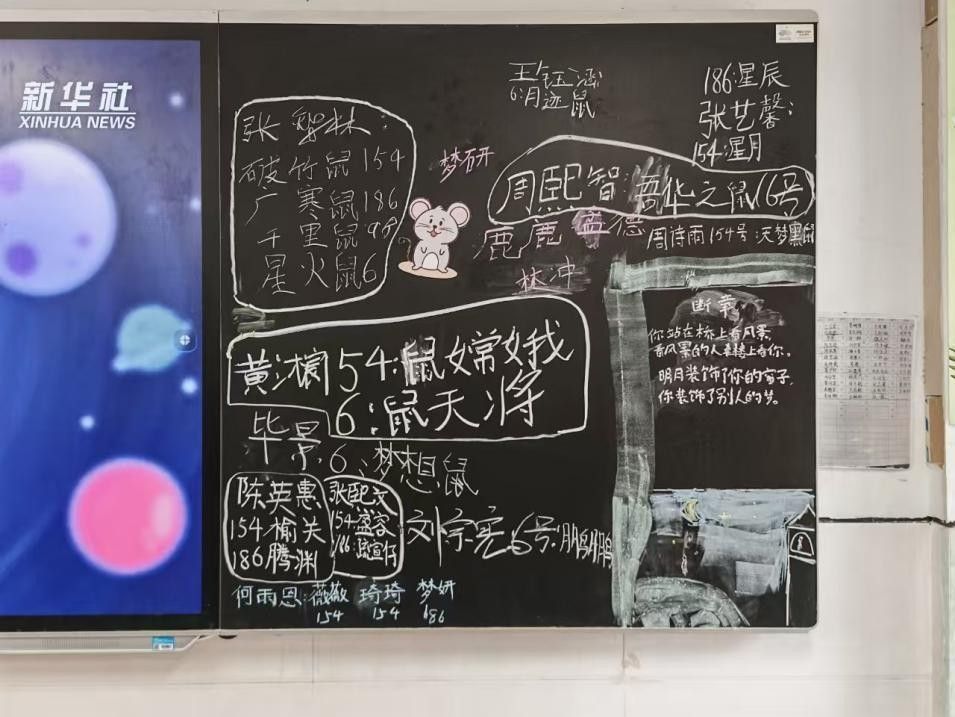 新华社
XINHUA NEWS
王钰涵
6:月迹鼠
186:星辰
张艺馨:
154:星月
张 林:
破竹鼠154
广寒鼠186
千里鼠98
星火鼠6
梦研
周熙智:吾华之鼠16号
周诗雨154号:天梦黑鼠
鹿鹿 盖德
林冲
断章
你站在桥上看风景,
看风景的人在楼上看你。
明月装饰了你的窗子,
你装饰了别人的梦。
黄 54:鼠嫦娥
6:鼠天将
毕景 6、梦想鼠
陈英惠
154榆关
186腾渊
张熙文
154:盛容
刘宗宪 6号:鹏鹏
何雨恩:薇薇 琦琦 梦妍
154 154 686